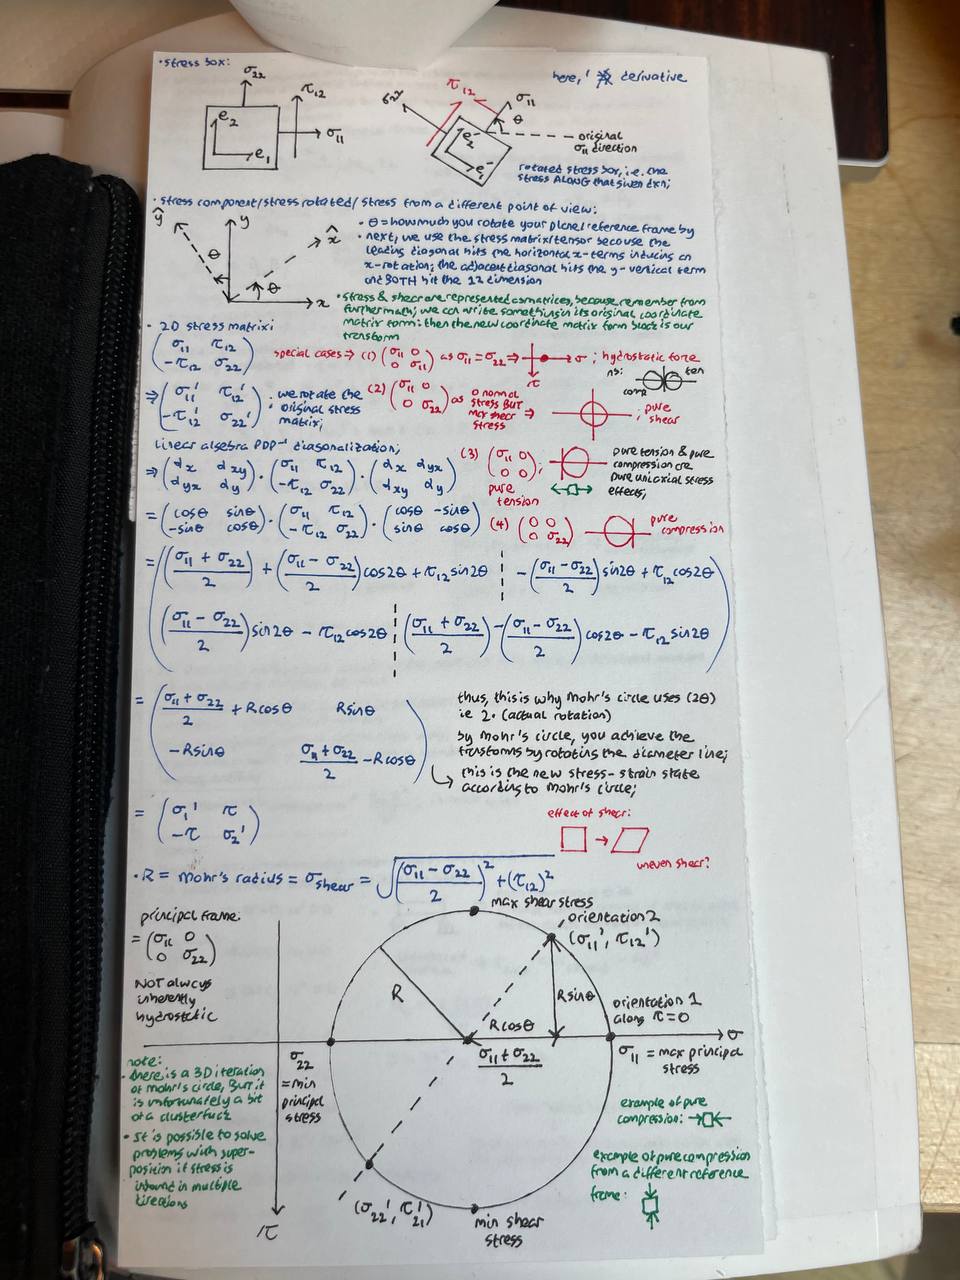 • stress box:
σ22
τ12
σ11
e2
e1
6
τ12
σ11
θ
e2'
e1'
here, ' derivative
original
σ11 direction
rotated stress box, i.e. the
stress ALONG that given dxn;
• stress component/stress rotated/stress from a different point of view:
ŷ
y
x̂
θ
θ
x
• θ = how much you rotate your plane/reference frame by
• next, we use the stress matrix/tensor because the
leading diagonal hits the horizontal x-terms inducing an
x-rotation; the adjacent diagonal hits the y-vertical term
and BOTH hit the 12 dimension
• stress & shear are represented as matrices, because remember from
further math; we can write something in its original coordinate
matrix form; then the new coordinate matrix form is our
transform
• 2D stress matrix:
(σ11 τ12
-τ12 σ22)
special cases ⇒ (1) (σ11 0
0 σ11) as σ11 = σ22 ⇒ σ ; hydrostatic force
τ
⇒ (σ11' τ12'
-τ12' σ22') : we rotate the
original stress
matrix;
(2) (σ11 0
0 σ22) as 0 normal
stress BUT
max shear ⇒
stress
; pure
shear
ns:
comp
ten
linear algebra PDP⁻¹ diagonalization;
⇒ (dx dxy
dyx dy) · (σ11 τ12
-τ12 σ22) · (dx dyx
dxy dy)
(3) (σ11 0
0 0);
pure
tension
pure tension & pure
compression are
pure uniaxial stress
effects;
= (cosθ sinθ
-sinθ cosθ) · (σ11 τ12
-τ12 σ22) · (cosθ -sinθ
sinθ cosθ)
(4) (0 0
0 σ22)
pure
compression
= ((σ11 + σ22)/2 + ((σ11 - σ22)/2) cos2θ + τ12 sin2θ -((σ11 - σ22)/2) sin2θ + τ12 cos2θ
((σ11 - σ22)/2) sin2θ - τ12 cos2θ ((σ11 + σ22)/2) - ((σ11 - σ22)/2) cos2θ - τ12 sin2θ)
= ((σ11 + σ22)/2 + Rcosθ Rsinθ
-Rsinθ (σ11 + σ22)/2 - Rcosθ)
thus, this is why Mohr's circle uses (2θ)
ie 2 · (actual rotation)
by Mohr's circle, you achieve the
transforms by rotating the diameter line;
↳ this is the new stress-strain state
according to Mohr's circle;
= (σ1' τ
-τ σ2')
effect of shear:
→
uneven shear?
• R = Mohr's radius = σshear = √(((σ11 - σ22)/2)² + (τ12)²)
principal frame:
= (σ11 0
0 σ22)
NOT always
inherently
hydrostatic
max shear stress
orientation 2
(σ11', τ12')
R
Rsinθ
Rcosθ
orientation 1
along τ=0
σ
σ22
= min
principal
stress
(σ11 + σ22)/2
σ11 = max principal
stress
note:
• there is a 3D iteration
of Mohr's circle, But it
is unfortunately a bit
of a clusterfuck
• It is possible to solve
problems with super-
position if stress is
inbound in multiple
directions
example of pure
compression: →□←
example of pure compression
from a different reference
frame:
(σ22', τ21')
min shear
stress
τ